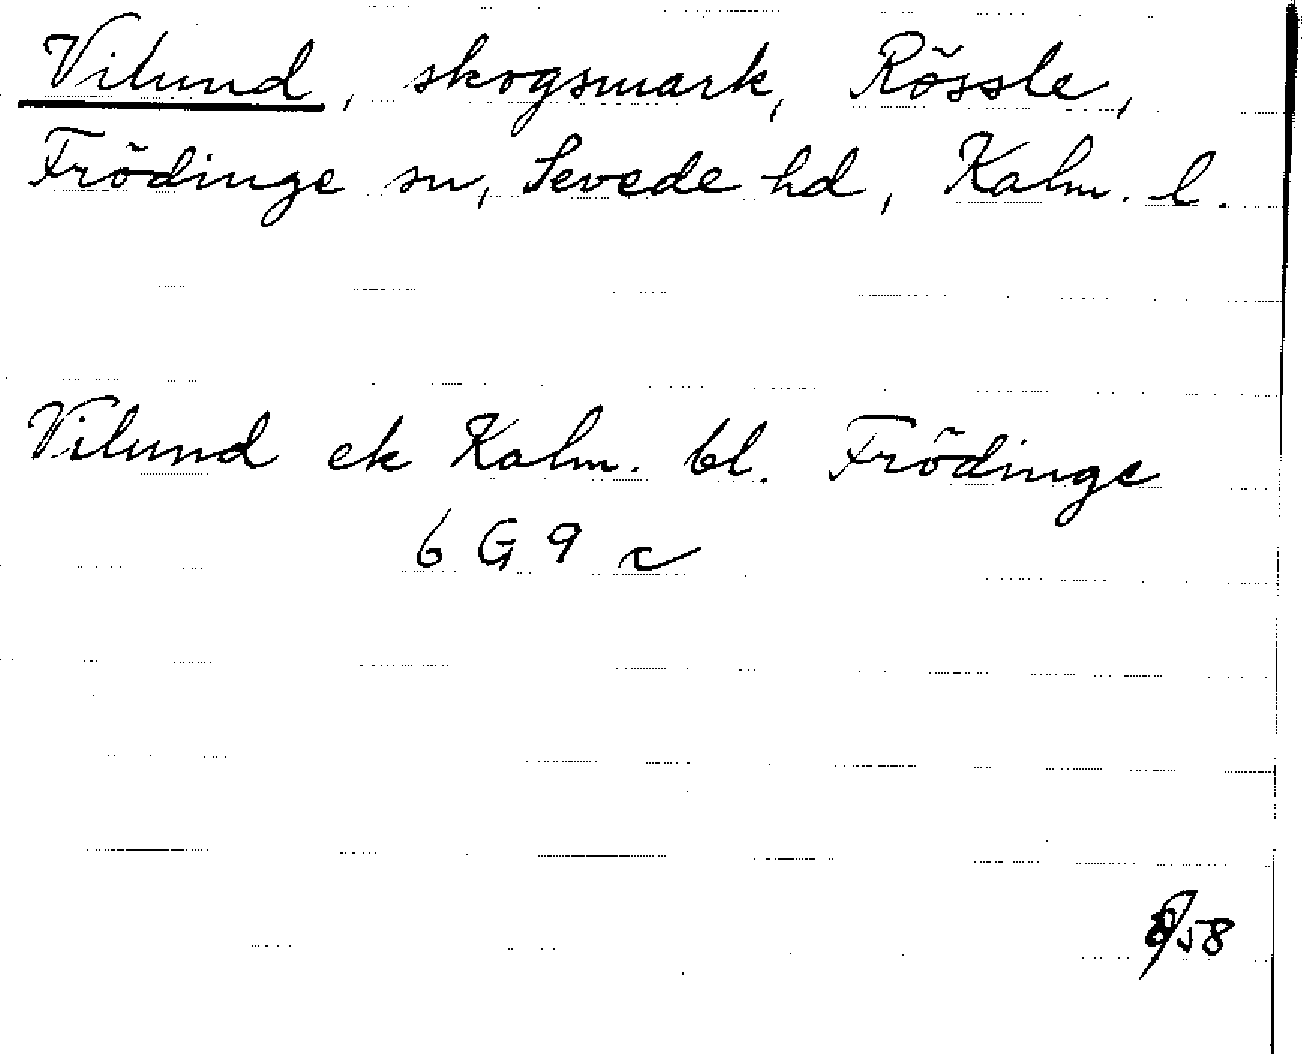 Vilund, skogsmark, Rössle,
Frödinge sn, Sevede hd, Kalm. l.
Vilund ek Kalm. bl. Frödinge
6 G 9 c
/58